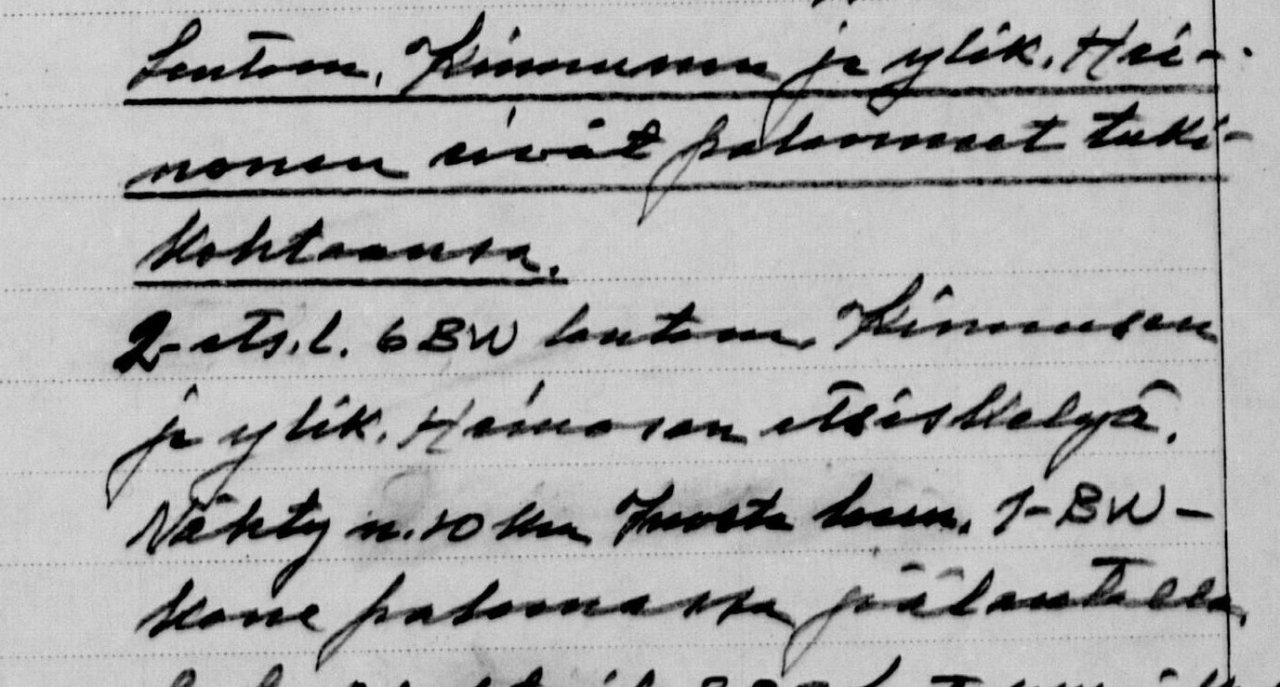 Lentom. Kinnunen ja ylik. Hei-
nonen eivät palanneet tuki-
kohtaansa.
2-ets.l. 6 BW lentom. Kinnusen
ja ylik. Heinosen etsiskelyä.
Nähty n. 10 km luun. 1-BW-
kone palamassa jäälautalla,